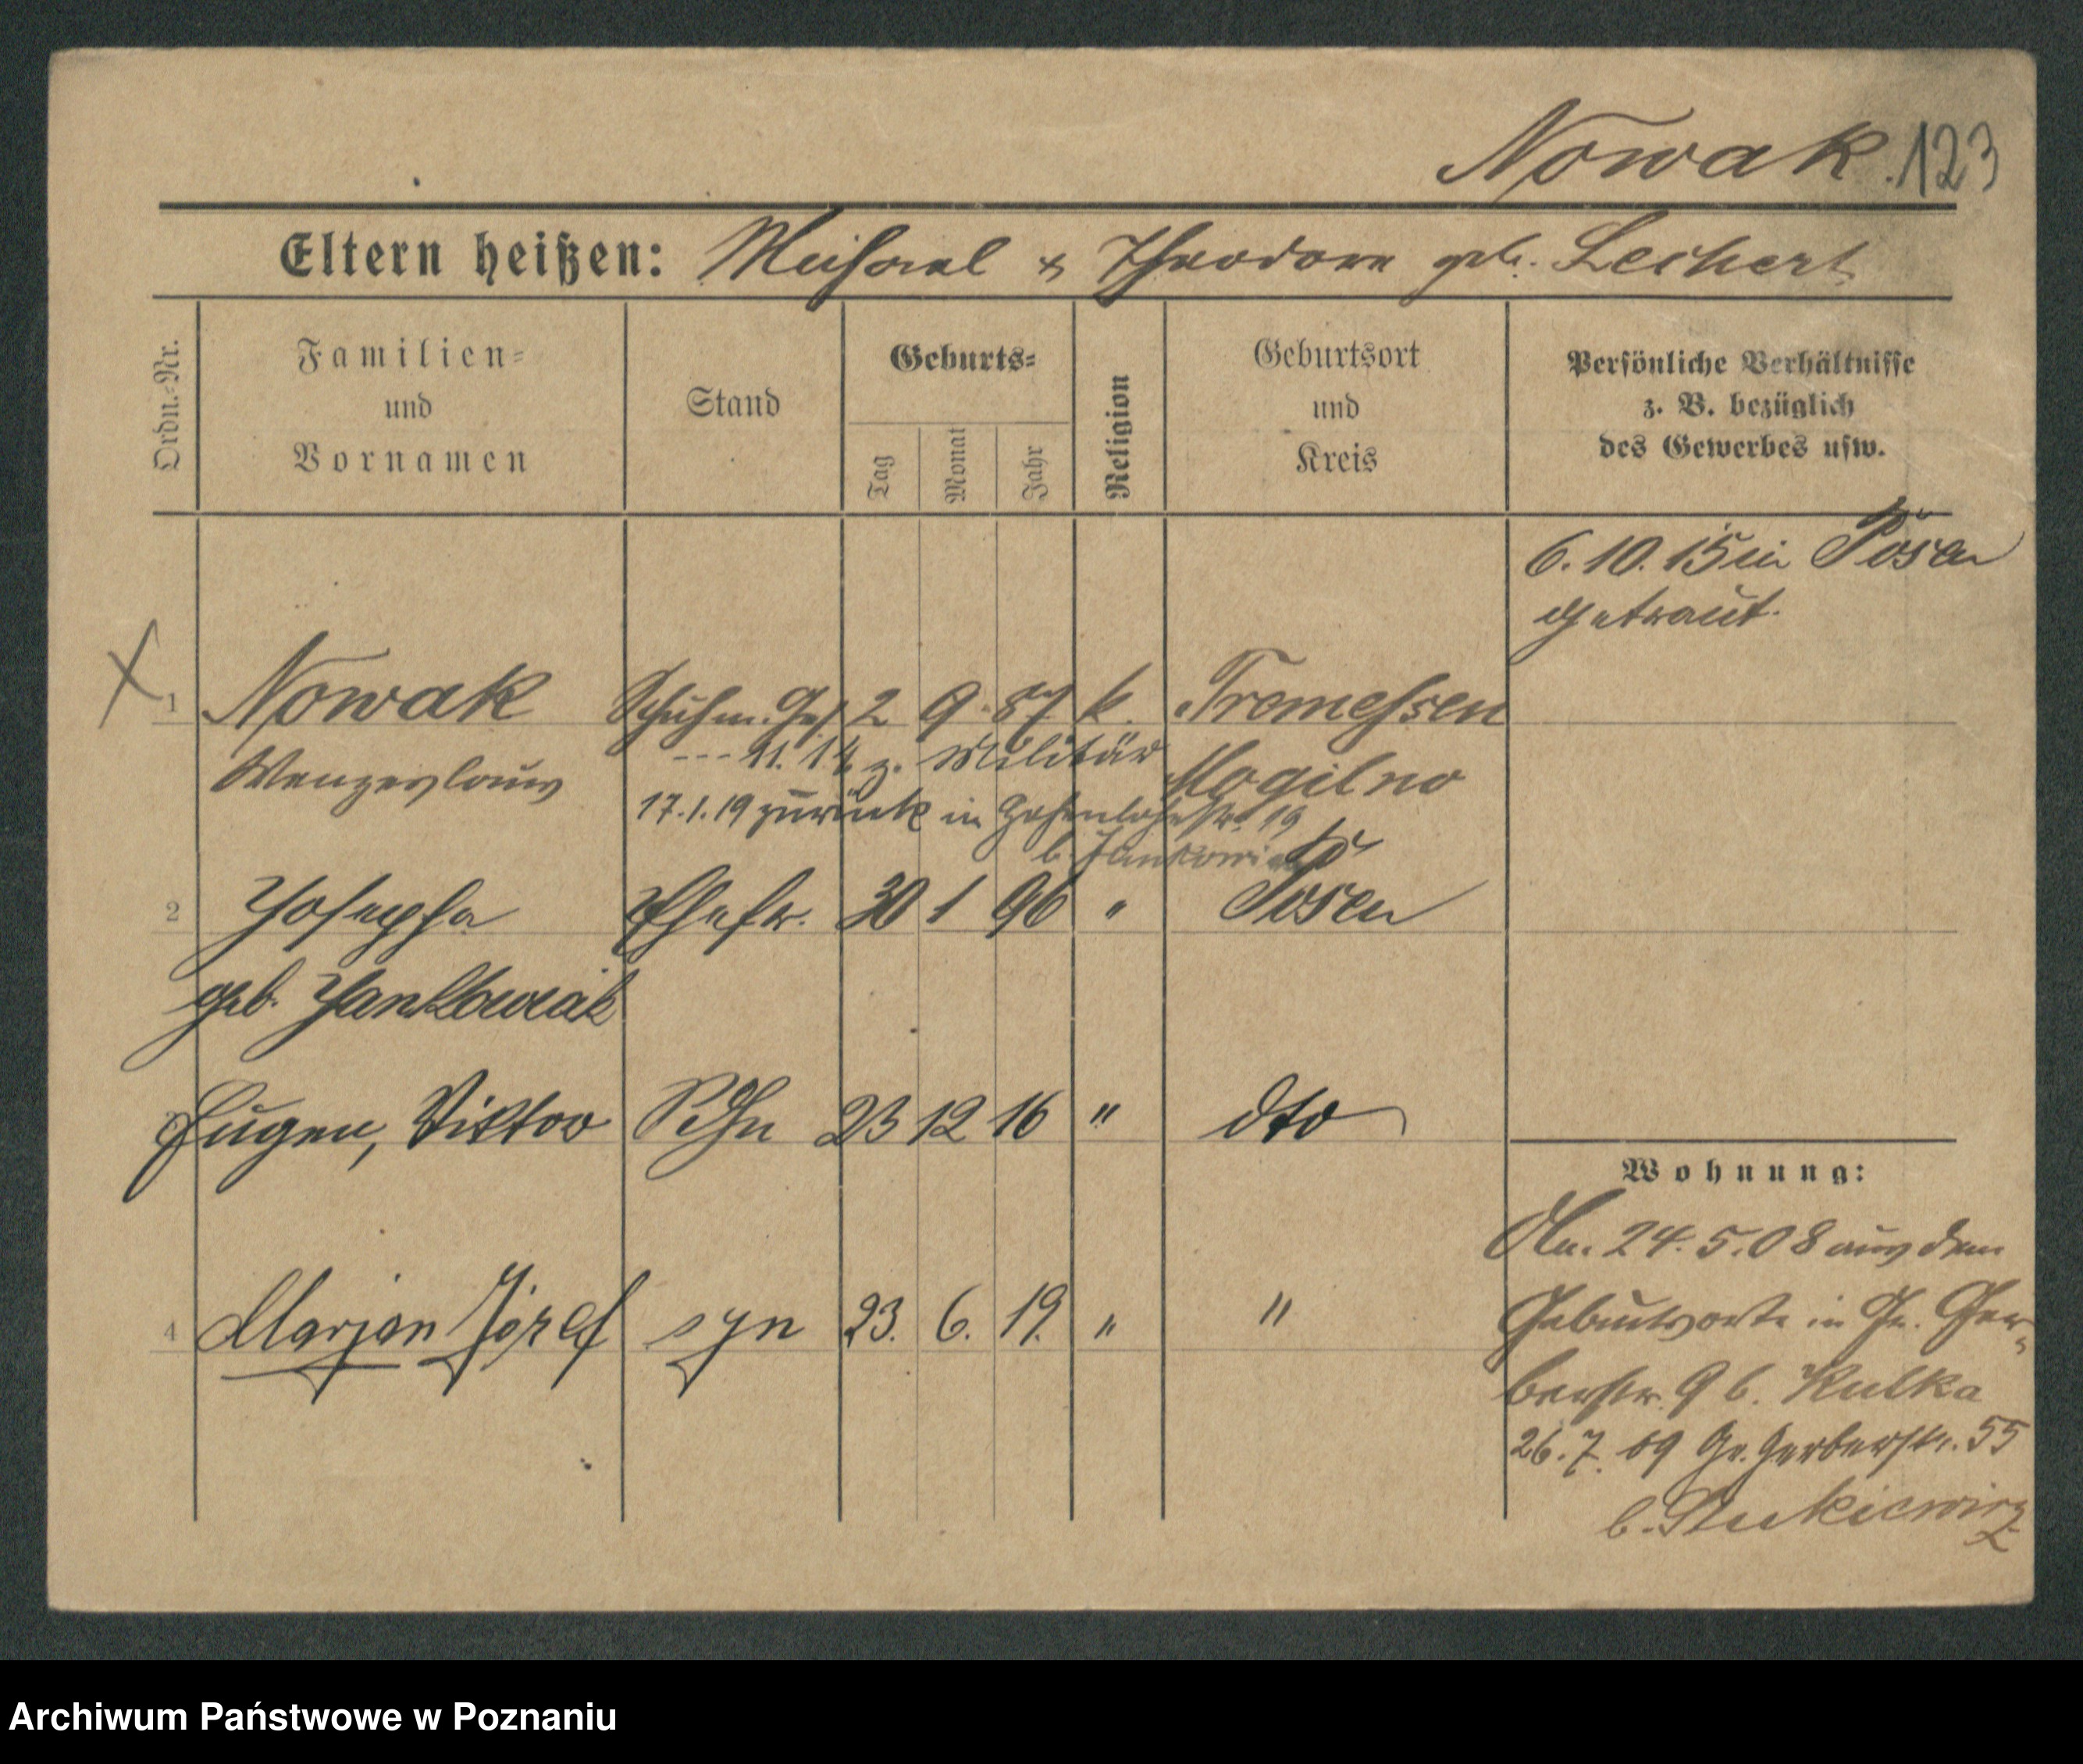 Nowak. 123
Eltern heißen: Michael & Theodora geb. Leichert
Ordn.-Nr.
Familien-
und
Vornamen
Stand
Geburts-
Tag
Monat
Jahr
Religion
Geburtsort
und
Kreis
Persönliche Verhältnisse
z. B. bezüglich
des Gewerbes usw.
6. 10. 15 in Posen
getraut.
X 1 Nowak Schuhm. Ges. 2 9. 87. k. Tremessen
Wenzeslaus
--- 11. 14 z. Militär
Mogilno
17.1.19 zurück in Hohenlohestr. 19
b.
2 Josepha Ehefr. 30 1 96 " Posen
geb. Jankowiak
Eugen, Viktor Sohn 23 12 16 " dto
Wohnung:
An. 24. 5. 08 aus dem
4 Marjan Józef syn 23. 6. 19. " "
Geburtsorte in Gr. Ger-
berstr. 9 b. Kulka
26. 7. 09 Gr. Gerberstr. 55
b.
Archiwum Państwowe w Poznaniu